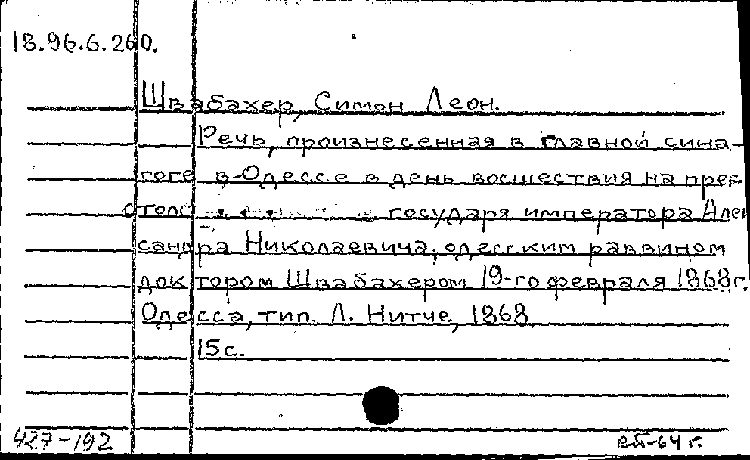 18.96.6.260.
Швабахер, Симон Леон.
Речь, произнесенная в главной сина-
гоге в Одессе в день восшествия на прес-
отола государя императора Алек
сандра Николаевича, одесским раввином
доктором Швабахером 19-го февраля 1868г.
Одесса, тип. Л. Нитче, 1868
15 с.
427-192